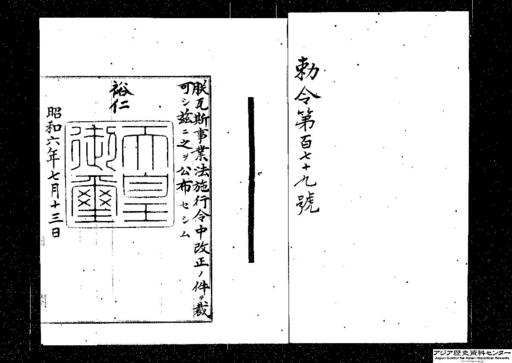 勅令第百七十九號
朕瓦斯事業法施行令中改正ノ件ヲ裁
可シ茲ニ之ヲ公布セシム
裕仁
天皇
御璽
昭和六年七月十三日
アジア歴史資料センター
Japan Center for Asian Historical Records